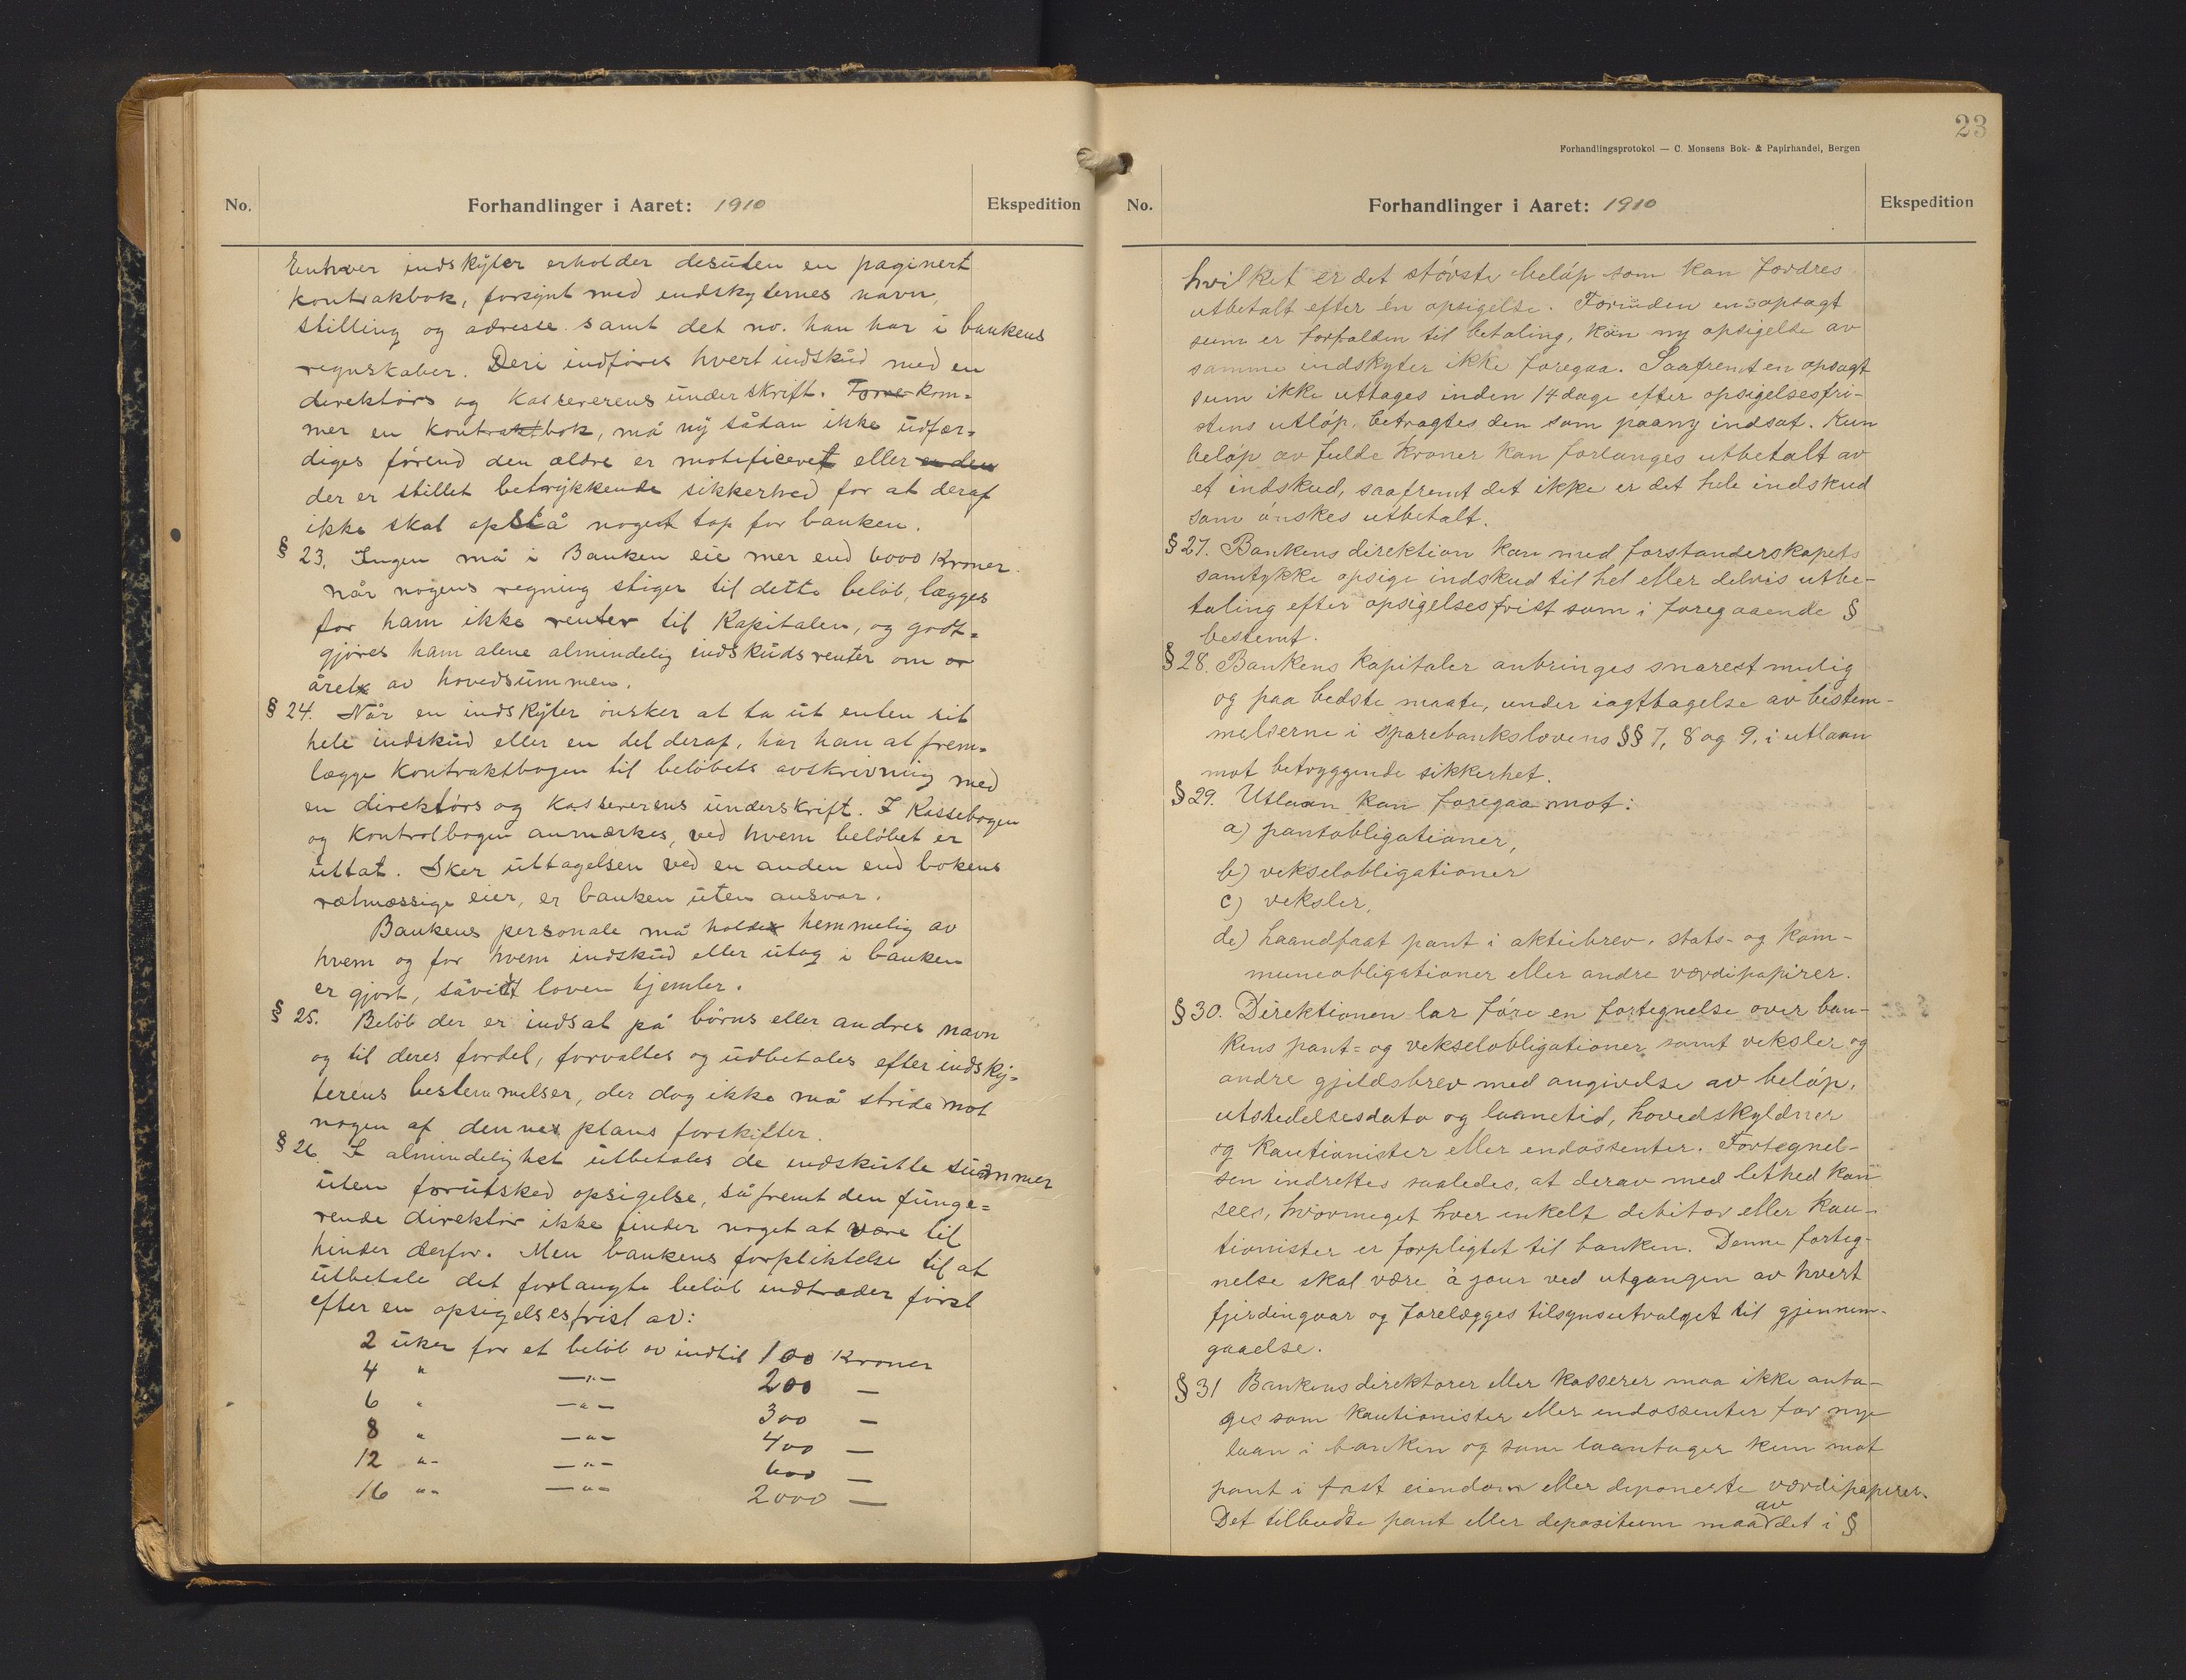 No.
Forhandlinger i Aaret: 1910
Ekspedition
Enhver indskyter erholder desuten en paginert
kontrakbok, forsynt med indskyternes navn,
stilling og adresse samt det no. han har i bankens
regnskaber. Deri indføres hvert indskud med en
direktørs og kassererens underskrift. Forrekom=
mer en kontraktbok, må ny sådan ikke udfær=
diges førend den ældre er motificeret eller enden
der er stillet betrykkende sikkerhed for at deraf
ikke skal opstå noget tap for banken.
§ 23. Ingen må i Banken eie mer end 6000 Kroner.
når nogens regning stiger til dette beløb, lægges
for ham ikke renter til Kapitalen, og godt=
gjøres ham alene almindelig indskudsrenter om
året av hovedsummen.
§ 24. Når en indskyter ønsker at ta ut enten sit
hele indskud eller en del deraf, har han at frem=
lægge Kontraktbogen til beløbets avskrivning med
en direktørs og kassererens underskrift. I Kassebogen
og kontrolbogen anmærkes, ved hvem beløbet er
uttat. Sker uttagelsen ved en anden end bokens
rætmæssige eier, er banken uten ansvar.
Bankens personale må holde hemmelig av
hvem og for hvem indskud eller utag i banken
er gjort, såvidt loven hjemler.
§ 25. Beløb der er indsat på børns eller andres navn
og til deres fordel, forvaltes og udbetales efter indsky=
terens bestemmelser, der dog ikke må stride mot
nogen af denne plans forskifter.
§ 26. I almindelighet utbetales de indskutte summer
uten forutsked opsigelse, såfremt den funge=
rende direktør ikke finder noget at være til
hinder derfor. Men bankens forpliktelse til at
utbetale det forlangte beløb indtræder først
efter en opsigelsesfrist av:
2 uker for et beløb av indtil 100 Kroner
4 " —"— 200 —
6 " —"— 300 —
8 " —"— 400 —
12 " —"— 600 —
16 " —"— 2000 —
23
Forhandlingsprotokol — C. Monsens Bok- & Papirhandel, Bergen
No.
Forhandlinger i Aaret: 1910
Ekspedition
hvilket er det største beløp som kan fordres
utbetalt efter én opsigelse. Forinden en opsagt
sum er forfalden til betaling, kan ny opsigelse av
samme indskyter ikke foregaa. Saafremt en opsagt
sum ikke uttages inden 14 dage efter opsigelsesfri-
stens utløp, betragtes den som paany indsat. Kun
beløp av fulde Kroner kan forlanges utbetalt av
et indskud, saafremt det ikke er det hele indskud
som ønskes utbetalt.
§ 27. Bankens direktion kan med forstanderskapets
samtykke opsige indskud til hel eller delvis utbe-
taling efter opsigelsesfrist som i foregaaende §
bestemt.
§ 28. Bankens Kapitaler anbringes snarest mulig
og paa bedste maate, under iagttagelse av bestem-
melserne i sparebankslovens §§ 7, 8 og 9, i utlaan
mot betryggende sikkerhet.
§ 29. Utlaan kan foregaa mot:
a) pantobligationer,
b) vekselobligationer
c) veksler,
de) haandfaat pant i aktiebrev, stats- og kom-
muneobligationer eller andre værdipapirer.
§ 30. Direktionen lar føre en fortegnelse over ban-
kens pant= og vekselobligationer samt veksler og
andre gjeldsbrev med angivelse av beløp,
utstedelsesdato og laanetid, hovedskyldner
og kautionister eller endossenter. Fortegnel-
sen indrettes saaledes, at derav med lethed kan
sees, hvormeget hver enkelt debitor eller kau-
tionister er forpligtet til banken. Denne forteg-
nelse skal være à jour ved utgangen av hvert
fjerdingaar og forelægges tilsynsutvalget til gjennem-
gaaelse.
§ 31 Bankens direktorer eller kasserer maa ikke anta-
ges som kautionister eller endossenter for nye
laan i banken og som laantager kun mot
pant i fast eiendom eller deponerte værdipapirer.
Det tilbudte pant eller depositum maa av det i §